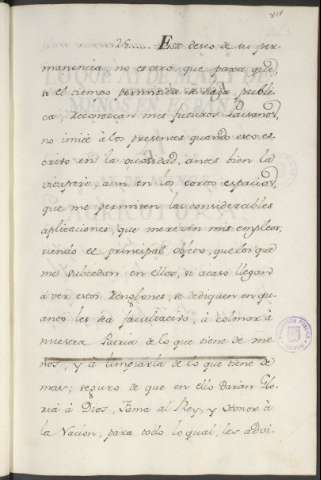 Este deseo de su per-
manencia, no es otro, que para que,
si el tiempo permitiese se haga públi-
ca, Reconozcan mis futuros Paisanos,
no imité a los presentes quando esto es-
crito en la ociosidad, antes bien la
vicupere, aun en los cortos espacios,
que me permiten las considerables
aplicaciones, que merecen mis empleos,
siendo el principal objeto, que los que
me subcedan en ellos, si acaso llegan
à ver estos Renglones, se dediquen en qu-
anto les sea facultativo, à colmar à
nuestra Patria de lo que tiene de me-
nos, y à limpiarla de lo que tiene de
mas; seguro de que en ello darán Glo-
ria à Dios, Fama al Rey, y Honor à
la Nacion; para todo lo qual, les adbi-